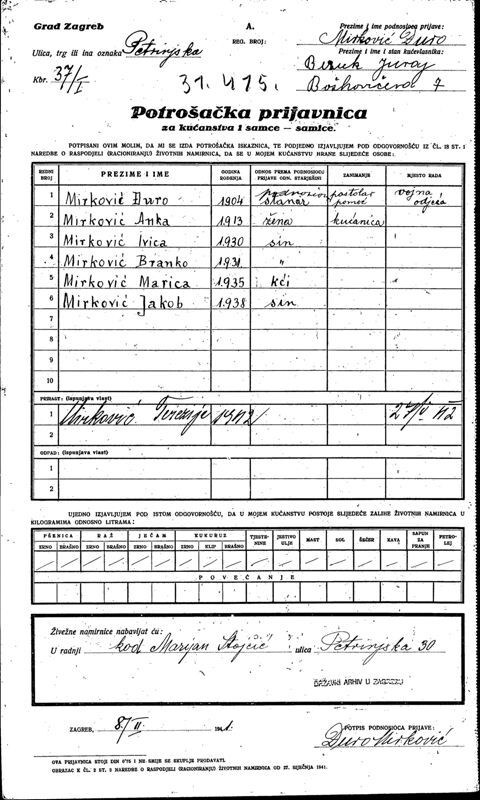 Grad Zagreb
A.
REG. BROJ:
Prezime i ime podnosioca prijave:
Mirković Đuro
Ulica, trg ili ina oznaka Petrinjska
Prezime i ime i stan kućevlasnika:
Biruk Juraj
Kbr. 37/I
31.475.
Boškovićeva 7
Potrošačka prijavnica
za kućanstva i samce — samice.
POTPISANI OVIM MOLIM, DA MI SE IZDA POTROŠAČKA ISKAZNICA, TE PODJEDNO IZJAVLJUJEM POD ODGOVORNOŠĆU IZ ČL. 13 ST. 1
NAREDBE O RASPODJELI (RACIONIRANJU) ŽIVOTNIH NAMIRNICA, DA SE U MOJEM KUĆANSTVU HRANE SLIJEDEĆE OSOBE:
REDNI BROJ PREZIME I IME GODINA ROĐENJA ODNOS PREMA PODNOSIOCU PRIJAVE ODN. STARJEŠINI ZANIMANJE MJESTO RADA
1 Mirković Đuro 1904 podnosioc stanar postolar pomoć vojna odjeća
2 Mirković Anka 1913 žena kućanica
3 Mirković Ivica 1930 sin
4 Mirković Branko 1931 "
5 Mirković Marica 1935 kći
6 Mirković Jakob 1938 sin
7
8
9
10
PRIRAST: (ispunjava vlast)
1 Mirković Terezije 1942 27/V 42
2
OTPAD: (ispunjava vlast)
1
2
UJEDNO IZJAVLJUJEM POD ISTOM ODGOVORNOŠĆU, DA U MOJEM KUĆANSTVU POSTOJE SLIJEDEĆE ZALIHE ŽIVOTNIH NAMIRNICA U
KILOGRAMIMA ODNOSNO LITRAMA:
PŠENICA RAŽ JEČAM KUKURUZ TJESTENINE JESTIVO ULJE MAST SOL ŠEĆER KAVA SAPUN ZA PRANJE PETROLEJ
ZRNO BRAŠNO ZRNO BRAŠNO ZRNO BRAŠNO ZRNO KLIP BRAŠNO
POVEĆANJE
Živežne namirnice nabavljat ću:
U radnji kod Marijan Stojčić ulica Petrinjska 30
DRŽAVNI ARHIV U ZAGREBU
ZAGREB, 8/II. 1941.
POTPIS PODNOSIOCA PRIJAVE:
Đuro Mirković
OVA PRIJAVNICA STOJI DIN 0'75 I NE SMIJE SE SKUPLJE PRODAVATI.
OBRAZAC K ČL. 2 ST. 3 NAREDBE O RASPODJELI (RACIONIRANJU) ŽIVOTNIH NAMIRNICA OD 27. SIJEČNJA 1941.